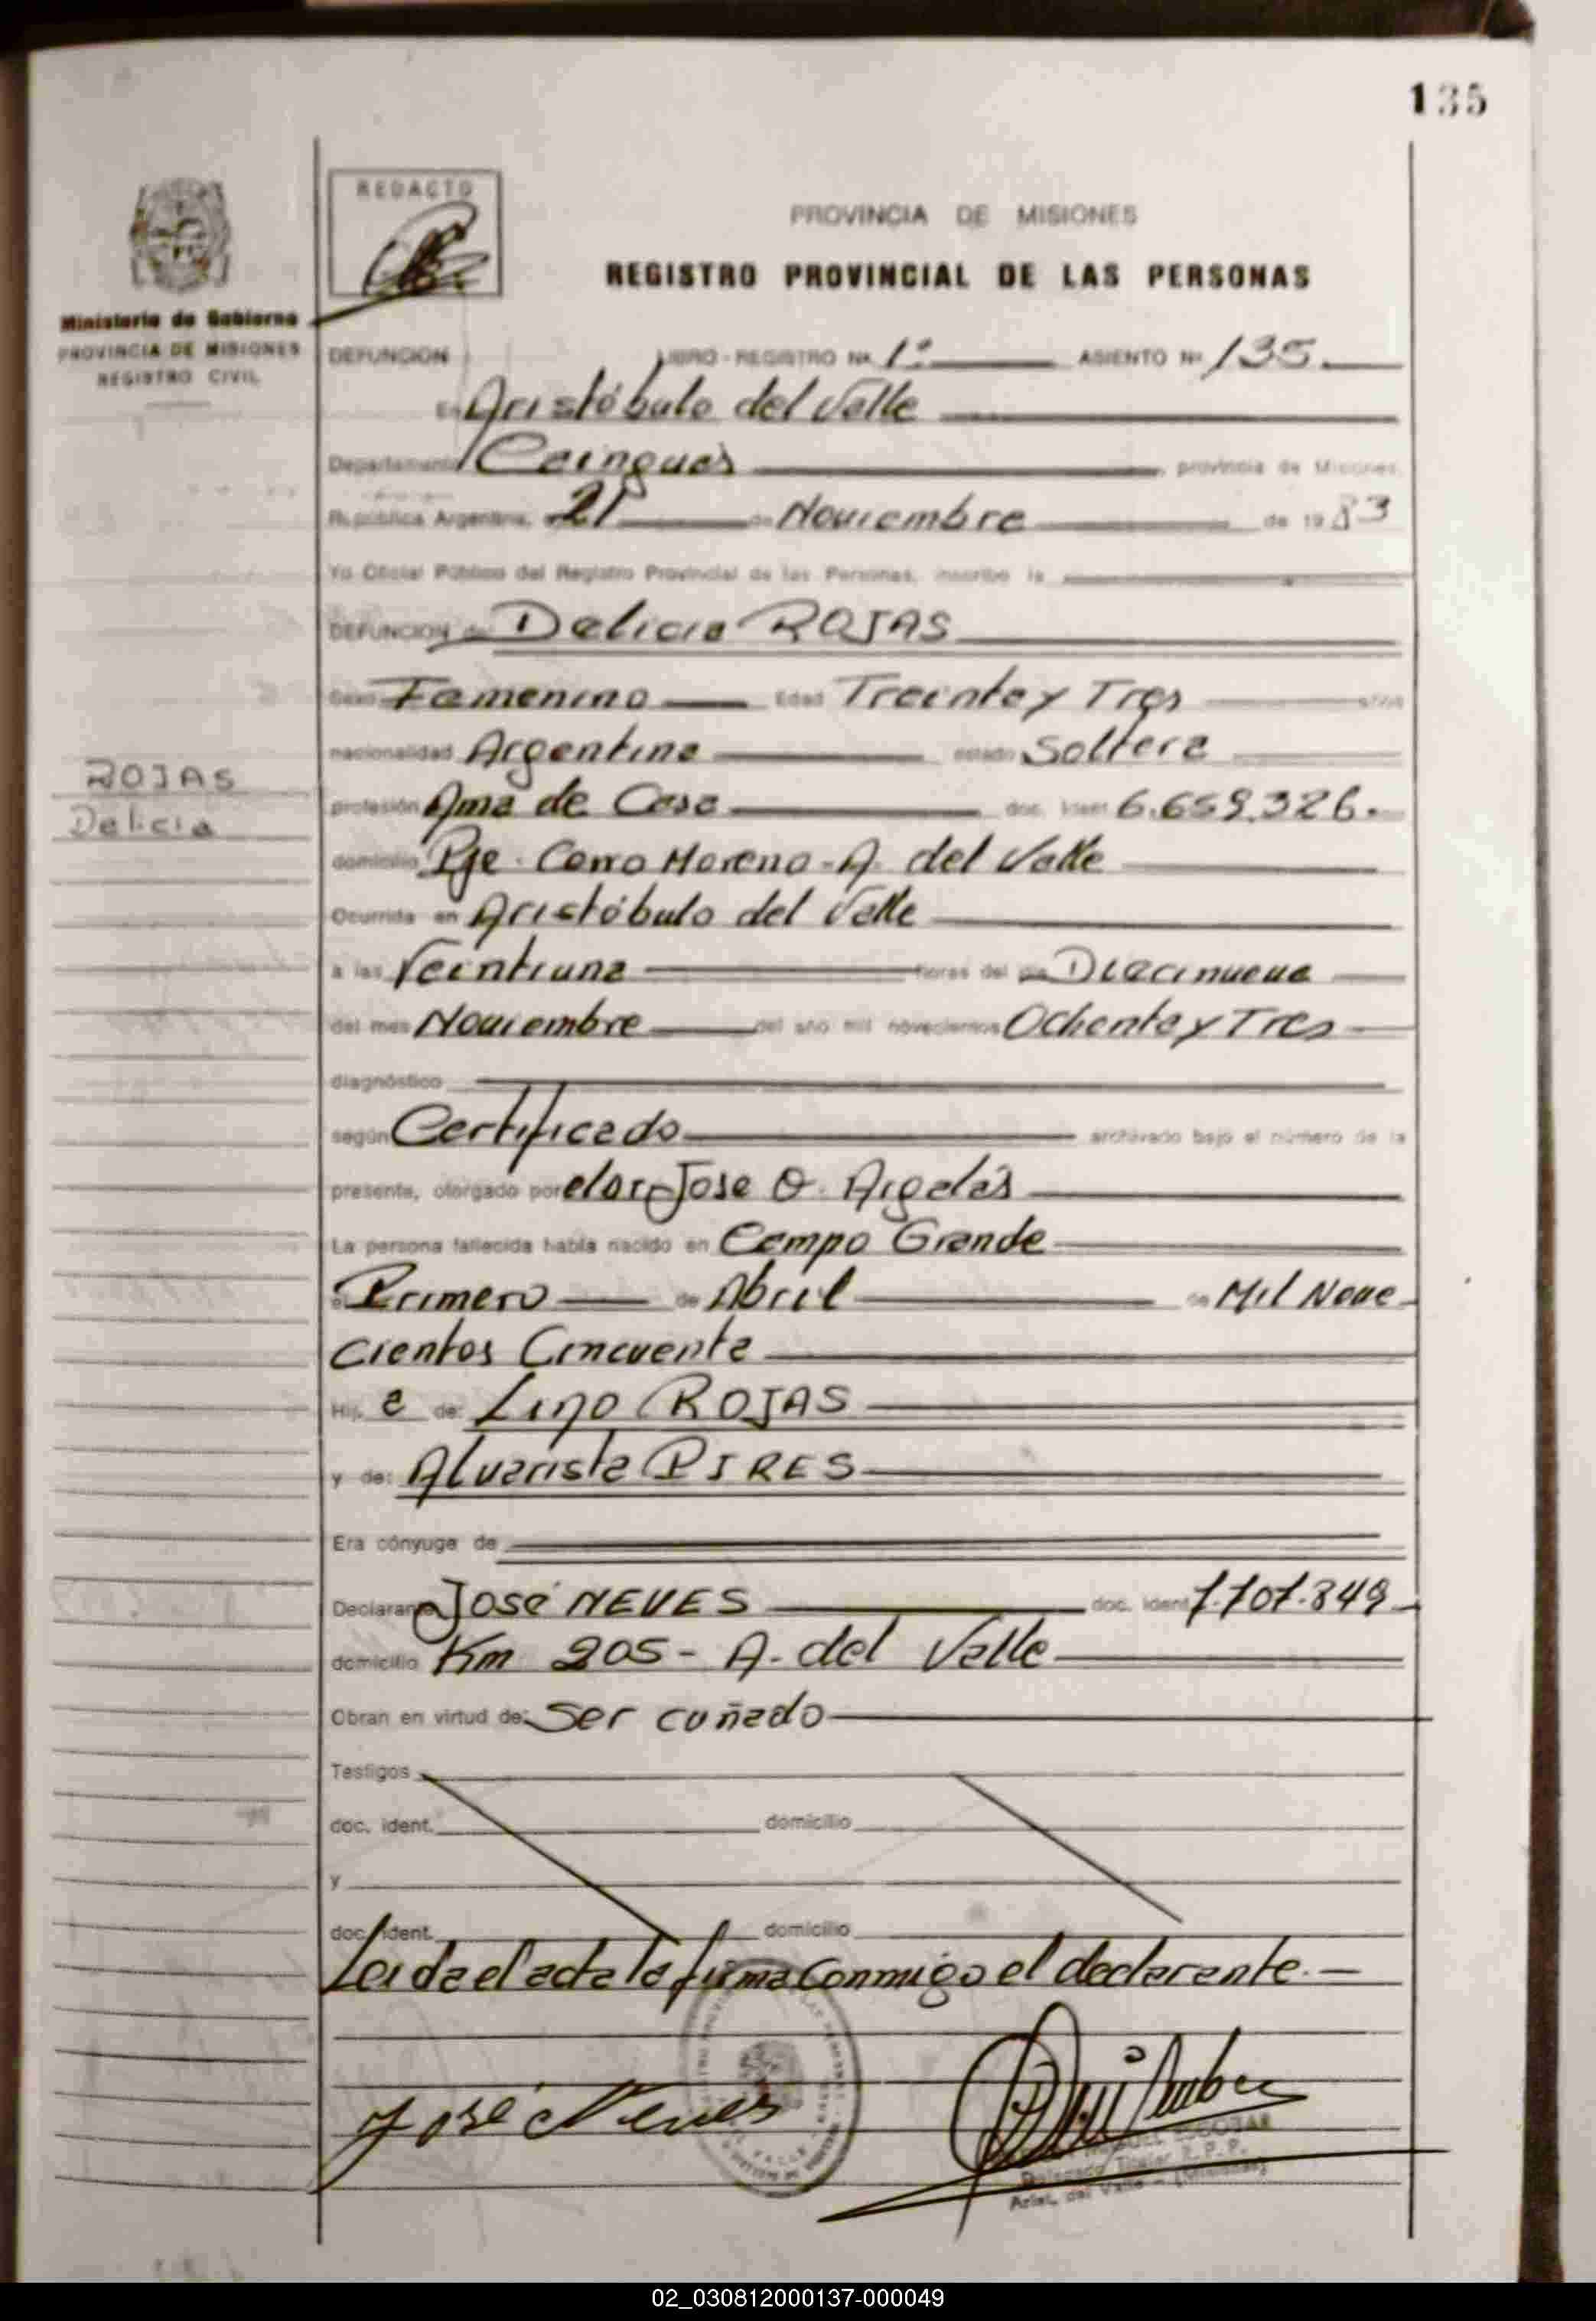 135
REDACTO
PROVINCIA DE MISIONES
REGISTRO PROVINCIAL DE LAS PERSONAS
Ministerio de Gobierno
PROVINCIA DE MISIONES
REGISTRO CIVIL
DEFUNCION LIBRO - REGISTRO Nº. 1º ASIENTO Nº 135.
En Aristóbulo del Valle
Departamento Cainguas, provincia de Misiones,
República Argentina, a 21 de Noviembre de 1983
Yo Oficial Público del Registro Provincial de las Personas, inscribo la
DEFUNCION de Delicia ROJAS
Sexo Femenino Edad Treinta y Tres años
nacionalidad Argentina estado Soltera
ROJAS
Delicia
profesión Ama de Casa doc. ident 6.659.326.
domicilio Pje. Cerro Moreno - A. del Valle
Ocurrida en Aristóbulo del Valle
a las Veintiuna horas del día Diecinueve
del mes Noviembre del año mil novecientos Ochenta y Tres
diagnóstico
según Certificado archivado bajo el número de la
presente, otorgado por el Dr. Jose O.
La persona fallecida había nacido en Campo Grande
el Primero de Abril de Mil Nove
cientos Cincuenta
Hij a de: Lino ROJAS
y de: Alvarista PIRES
Era cónyuge de
Declarante José NEVES doc. ident
domicilio Km 205 - A. del Valle
Obran en virtud de: Ser cuñado
Testigos
doc. ident. domicilio
y
doc. ident. domicilio
Leida el acta la firma conmigo el declarante. —
José Neves
ESCOBAR
Delegado Titular R. P. P.
Arist. del Valle - (Misiones)
02_030812000137-000049